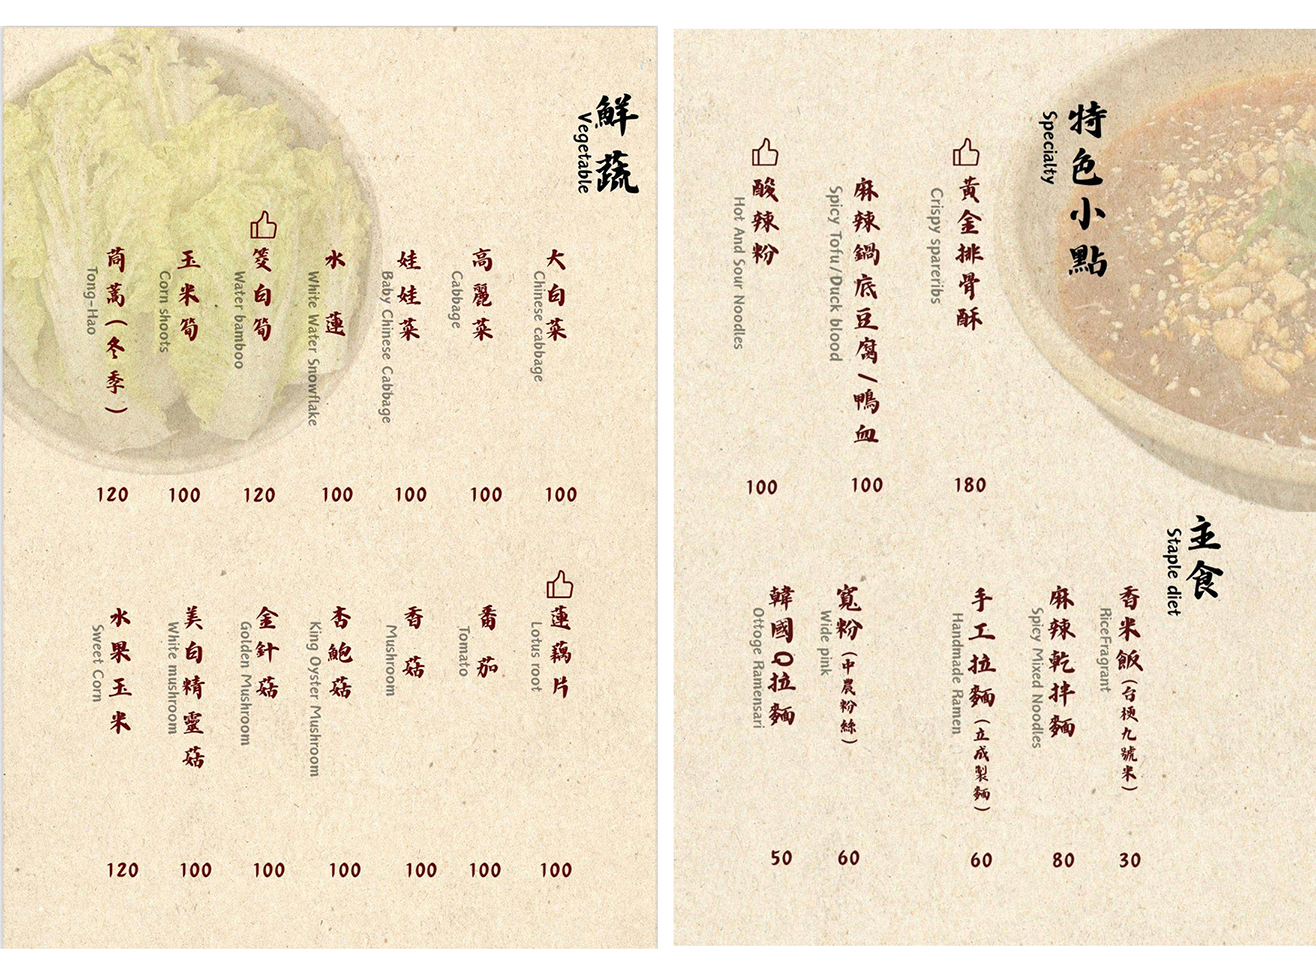 鮮蔬
Vegetable
大白菜
Chinese cabbage
100
高麗菜
Cabbage
100
娃娃菜
Baby Chinese Cabbage
100
水蓮
White Water Snowflake
100
筊白筍
Water bamboo
120
玉米筍
Corn shoots
100
茼蒿(冬季)
Tong-Hao
120
蓮藕片
Lotus root
100
番茄
Tomato
100
香菇
Mushroom
100
杏鮑菇
King Oyster Mushroom
100
金針菇
Golden Mushroom
100
美白精靈菇
White mushroom
100
水果玉米
Sweet Corn
120
特色小點
Specialty
黃金排骨酥
Crispy spareribs
180
麻辣鍋底豆腐/鴨血
Spicy Tofu/Duck blood
100
酸辣粉
Hot And Sour Noodles
100
主食
Staple diet
香米飯(台梗九號米)
RiceFragrant
30
麻辣乾拌麵
Spicy Mixed Noodles
80
手工拉麵(立成製麵)
Handmade Ramen
60
寬粉(中農粉絲)
Wide pink
60
韓國Q拉麵
Ottoge Ramensari
50